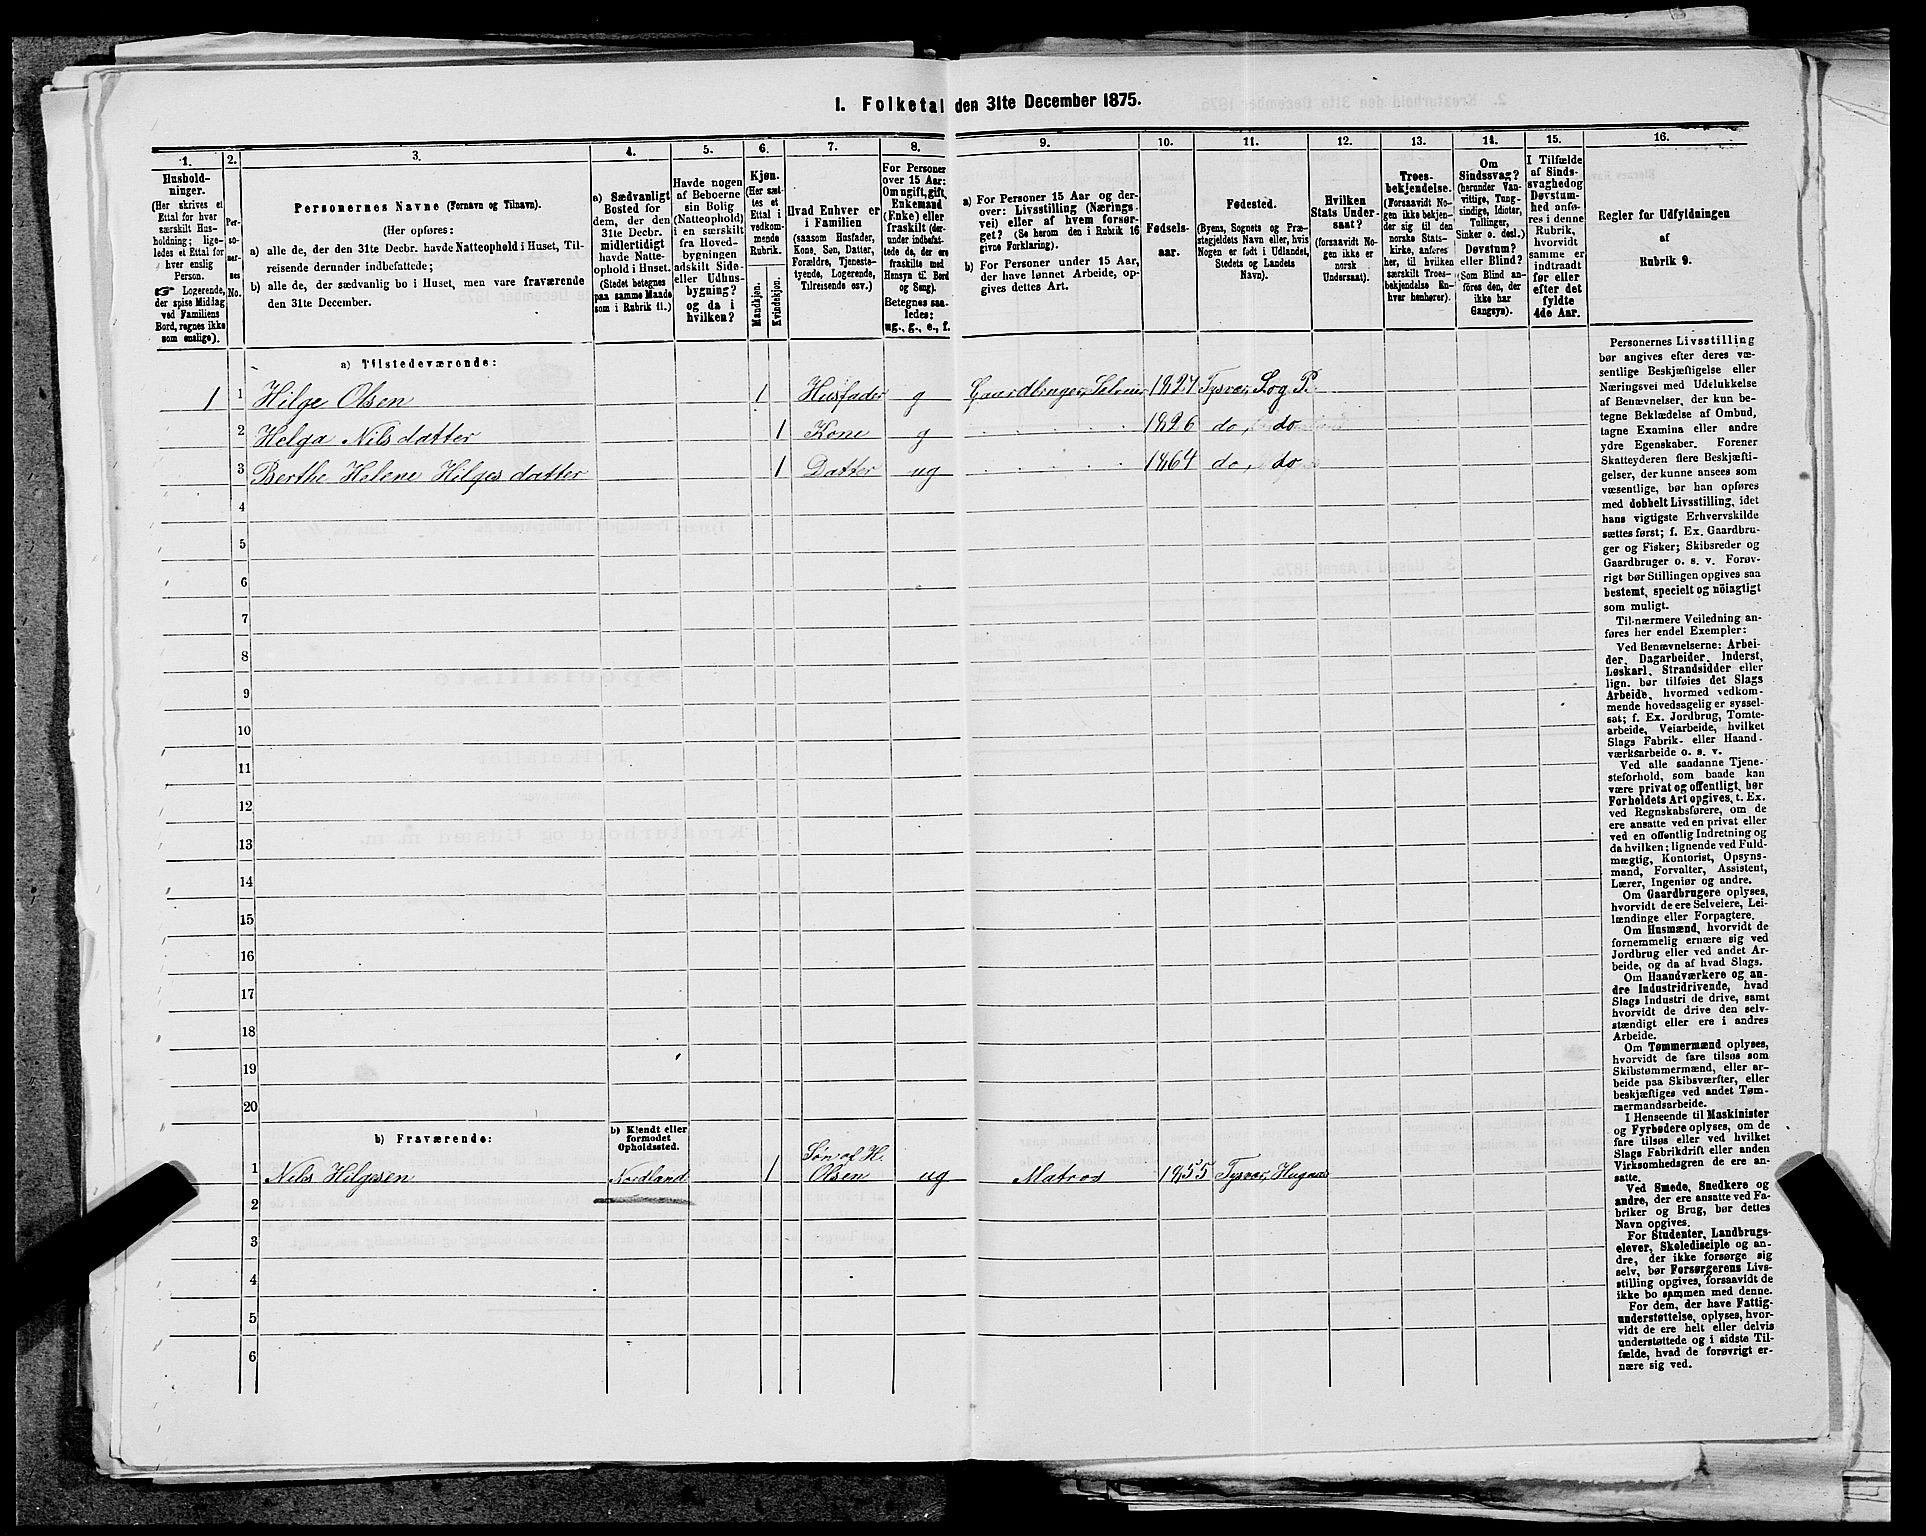 1. Folketal den 31te December 1875.
1. 2. 3. 4. 5. 6. 7. 8. 9. 10. 11. 12. 13. 14. 15. 16.
Hushold-
ninger.
(Her skrives et
Ettal for hver
særskilt Hus-
holdning; lige-
ledes et Ettal for
hver enslig
Person.
☞ Logerende,
der spise Middag
ved Familiens
Bord, regnes ikke
som enslige).
Per-
so-
ner-
nes
No.
Personernes Navne (Fornavn og Tilnavn).
(Her opføres:
a) alle de, der den 31te Decbr. havde Natteophold i Huset, Til-
reisende derunder indbefattede;
b) alle de, der sædvanlig bo i Huset, men vare fraværende
den 31te December.
a) Sædvanligt
Bosted for
dem, der den
31te Decbr.
midlertidigt
havde Natte-
ophold i Huset.
(Stedet betegnes
paa samme Maade
som i Rubrik 11.)
Havde nogen
af Beboerne
sin Bolig
(Natteophold)
i en særskilt
fra Hoved-
bygningen
adskilt Side-
eller Udhus-
bygning?
og da i
hvilken?
Kjøn.
(Her sæt-
tes et
Ettal i
vedkom-
mende
Rubrik.
Mandkjøn.
Kvindekjøn.
Hvad Enhver er
i Familien
(saasom Husfader,
Kone, Søn, Datter,
Forældre, Tjeneste-
tyende, Logerende,
Tilreisende osv.)
For Personer
over 15 Aar:
Om ugift, gift,
Enkemand
(Enke) eller
fraskilt (der-
under indbefat-
tede de, der ere
fraskilte med
Hensyn til Bord
og Seng).
Betegnes saa-
ledes:
ug., g., e., f.
a) For Personer 15 Aar og der-
over: Livsstilling (Nærings-
vei) eller af hvem forsør-
get? (Se herom den i Rubrik 16
givne Forklaring).
b) For Personer under 15 Aar,
der have lønnet Arbeide, op-
gives dettes Art.
Fødsels-
aar.
Fødested.
(Byens, Sognets og Præ-
stegjeldets Navn eller, hvis
Nogen er født i Udlandet,
Stedets og Landets
Navn).
Hvilken
Stats Under-
saat?
(forsaavidt No-
gen ikke er
norsk
Undersaat).
Troes-
bekjendelse.
(Forsaavidt No-
gen ikke bekjen-
der sig til den
norske Stats-
kirke, anføres
her, til hvilken
særskilt Troes-
bekjendelse En-
hver henhører).
Om
Sindssvag?
(herunder Van-
vittige, Tung-
sindige, Idioter,
Tullinger,
Sinker o. desl.)
Døvstum?
eller Blind?
(Som Blind an-
føres den, der
ikke har
Gangsyn).
I Tilfælde
af Sinds-
svaghed og
Døvstum-
hed anfø-
res i denne
Rubrik,
hvorvidt
samme er
indtraadt
før eller
efter det
fyldte
4de Aar.
Regler for Udfyldningen
af
Rubrik 9.
a) Tilstedeværende:
1 1 Hilge Olsen 1 Husfader g Gaardbruger, Selveier 1827 Tysvær S. og P.
2 Helga Nilsdatter 1 Kone g 1826 do, do
3 Berthe Helene Hilgesdatter 1 Datter ug 1864 do, do
4
5
6
7
8
9
10
11
12
13
14
15
16
17
18
19
20
b) Fraværende:
b) Kjendt eller
formodet
Opholdssted.
1 Nils Hilgesen Nordland 1 Søn af H. Olsen ug Matros 1855 Tysvær,
2
3
4
5
6
Personernes Livsstilling
bør angives efter deres væ-
sentlige Beskjæftigelse eller
Næringsvei med Udelukkelse
af Benævnelser, der kun be-
tegne Beklædelse af Ombud,
tagne Examina eller andre
ydre Egenskaber. Forener
Skatteyderen flere Beskjæfti-
gelser, der kunne ansees som
væsentlige, bør han opføres
med dobbelt Livsstilling, idet
hans vigtigste Erhvervskilde
sættes først; f. Ex. Gaardbru-
ger og Fisker; Skibsreder og
Gaardbruger o. s. v. Forøv-
rigt bør Stillingen opgives saa
bestemt, specielt og nöiagtigt
som muligt.
Til nærmere Veiledning an-
føres her endel Exempler:
Ved Benævnelserne: Arbei-
der, Dagarbeider, Inderst,
Løskarl, Strandsidder eller
lign. bør tilføies det Slags
Arbeide, hvormed vedkom-
mende hovedsagelig er syssel-
sat; f. Ex. Jordbrug, Tomte-
arbeide, Veiarbeide, hvilket
Slags Fabrik- eller Haand-
værksarbeide o. s. v.
Ved alle saadanne Tjene-
steforhold, som baade kan
være privat og offentligt, bør
Forholdets Art opgives, t. Ex.
ved Regnskabsførere, om de
ere ansatte ved en privat eller
ved en offentlig Indretning og
da hvilken; lignende ved Fuld-
mægtig, Kontorist, Opsyns-
mand, Forvalter, Assistent,
Lærer, Ingeniør og andre.
Om Gaardbrugere oplyses,
hvorvidt de ere Selveiere, Lei-
lændinge eller Forpagtere.
Om Husmænd, hvorvidt de
fornemmelig ernære sig ved
Jordbrug eller ved andet Ar-
beide, og da af hvad Slags.
Om Haandværkere og an-
dre Industridrivende, hvad
Slags Industri de drive, samt
hvorvidt de drive den selv-
stændigt eller ere i andres
Arbeide.
Om Tømmermænd oplyses,
hvorvidt de fare tilsøs som
Skibstømmermænd, eller ar-
beide paa Skibsværfter, eller
beskjæftiges ved andet Tøm-
mermandsarbeide.
I Henseende til Maskinister
og Fyrbødere oplyses, om de
fare tilsøs eller ved hvilket
Slags Fabrikdrift eller anden
Virksomhedsgren de ere an-
satte.
Ved Smede, Snedkere og
andre, der ere ansatte ved Fa-
briker og Brug, bør dettes
Navn opgives.
For Studenter, Landbrugs-
elever, Skoledisciple og an-
dre, der ikke forsørge sig
selv, bør Forsørgerens Livs-
stilling opgives, forsaavidt de
ikke bo sammen med denne.
For dem, der have Fattig-
understøttelse, oplyses, hvor-
vidt de ere helt eller delvis
understøttede og i sidste Til-
fælde, hvad de forøvrigt er-
nære sig ved.